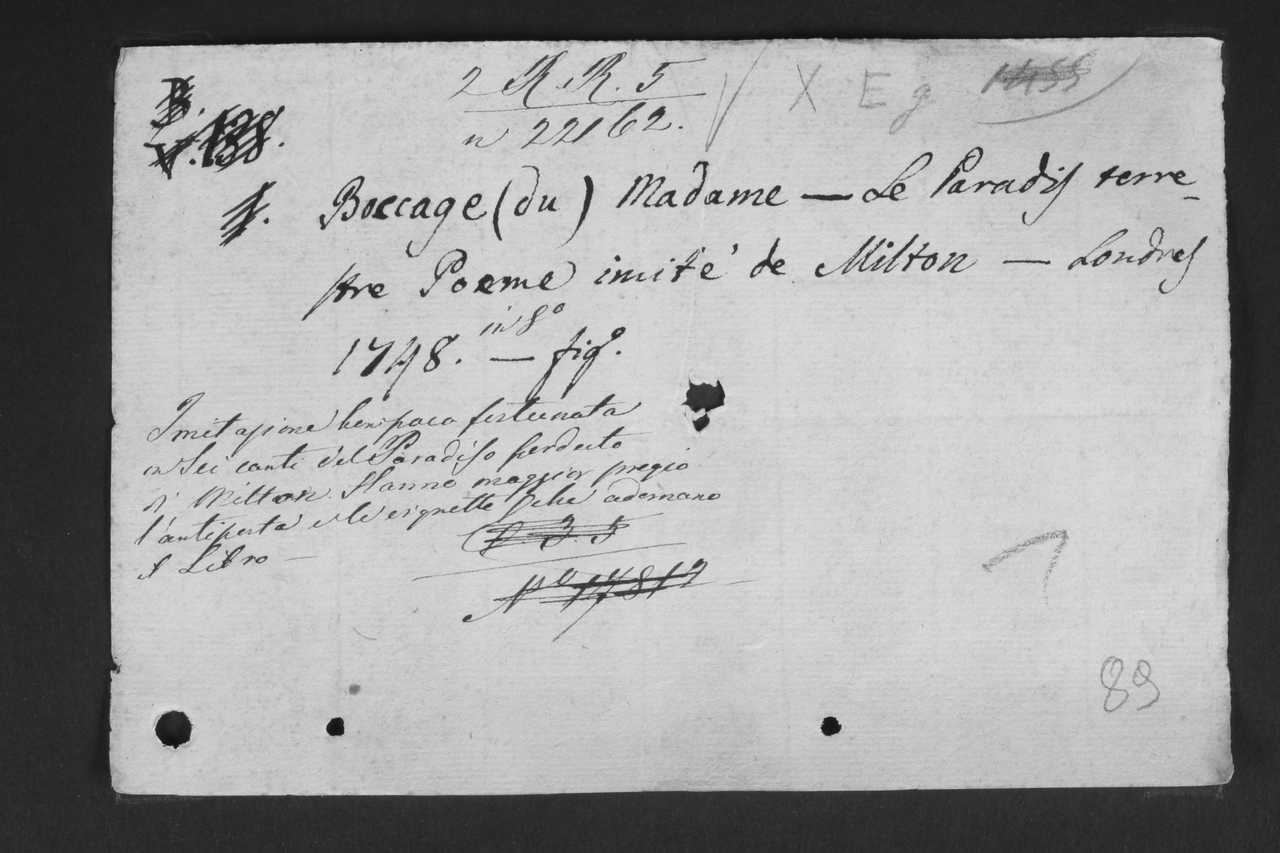 2 R. R. 5
n 22162.
X E g 1455
B.
V. 138.
1. Boccage (du) Madame — Le Paradis terre-
stre Poeme imité de Milton — Londres
1748. in 8° — fig°.
Imitazione ben poco fortunata
in sei canti del Paradiso perduto
di Milton. Hanno maggior pregio
l'antiporta e le vignette che adornano
il Libro —
N° 17817
7
89